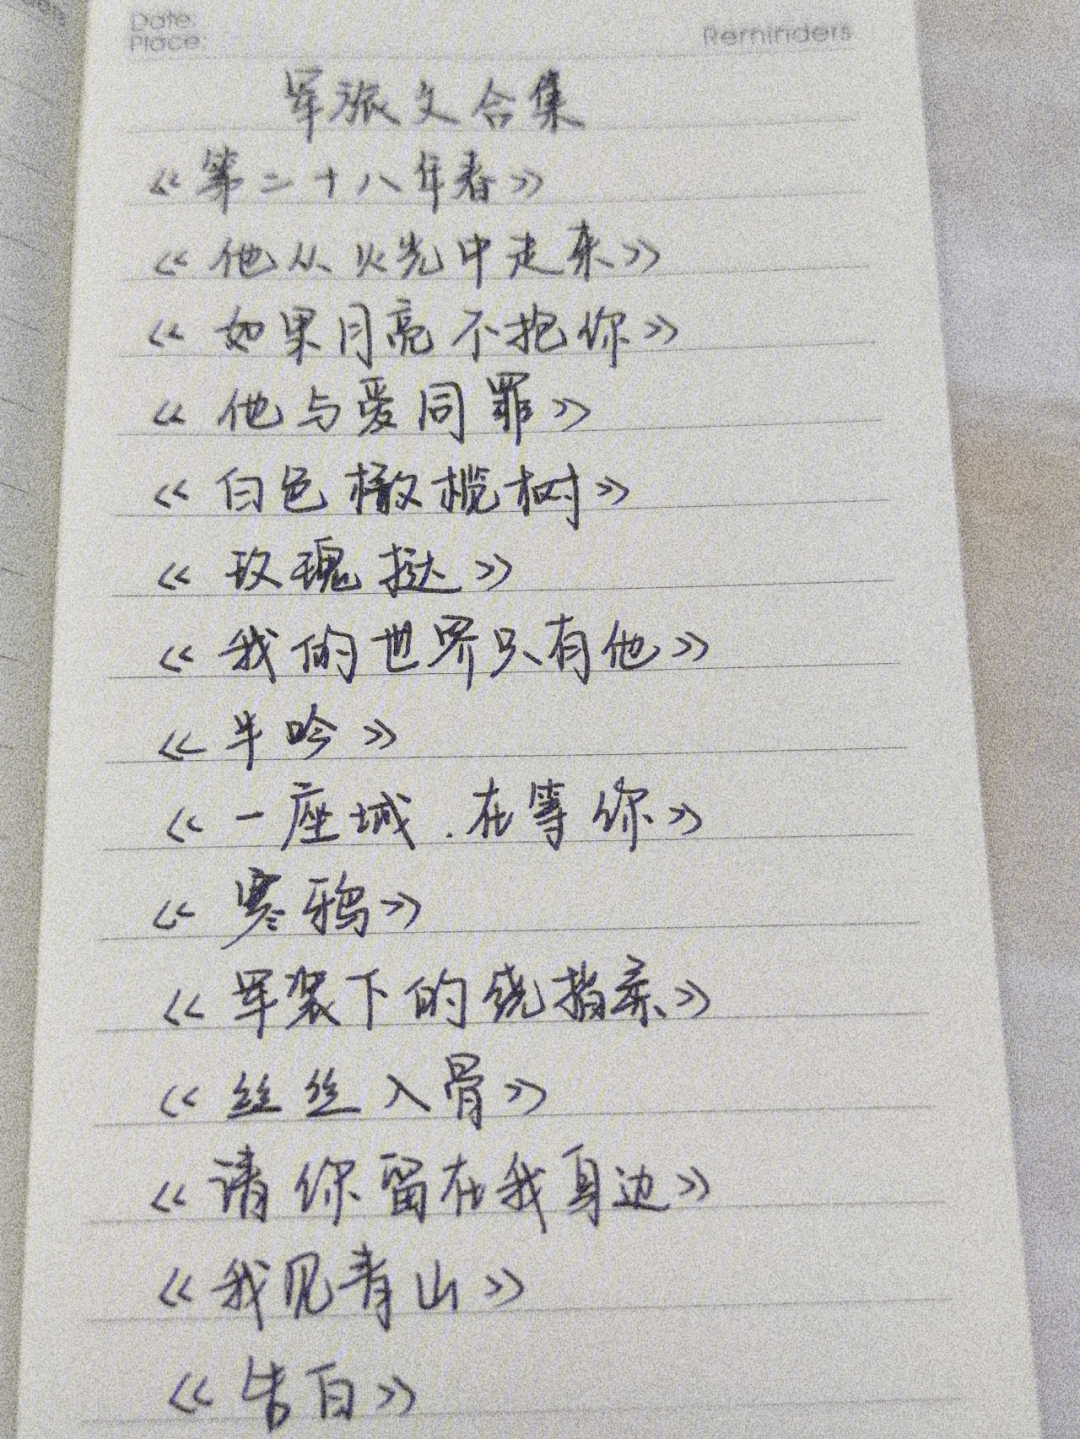 Date:
Place:
Reminders
军旅文合集
《第二十八年春》
《他从火光中走来》
《如果月亮不抱你》
《他与爱同罪》
《白色橄榄树》
《玫瑰挞》
《我的世界只有他》
《半吟》
《一座城.在等你》
《寒鸦》
《军装下的绕指柔》
《丝丝入骨》
《请你留在我身边》
《我见青山》
《告白》